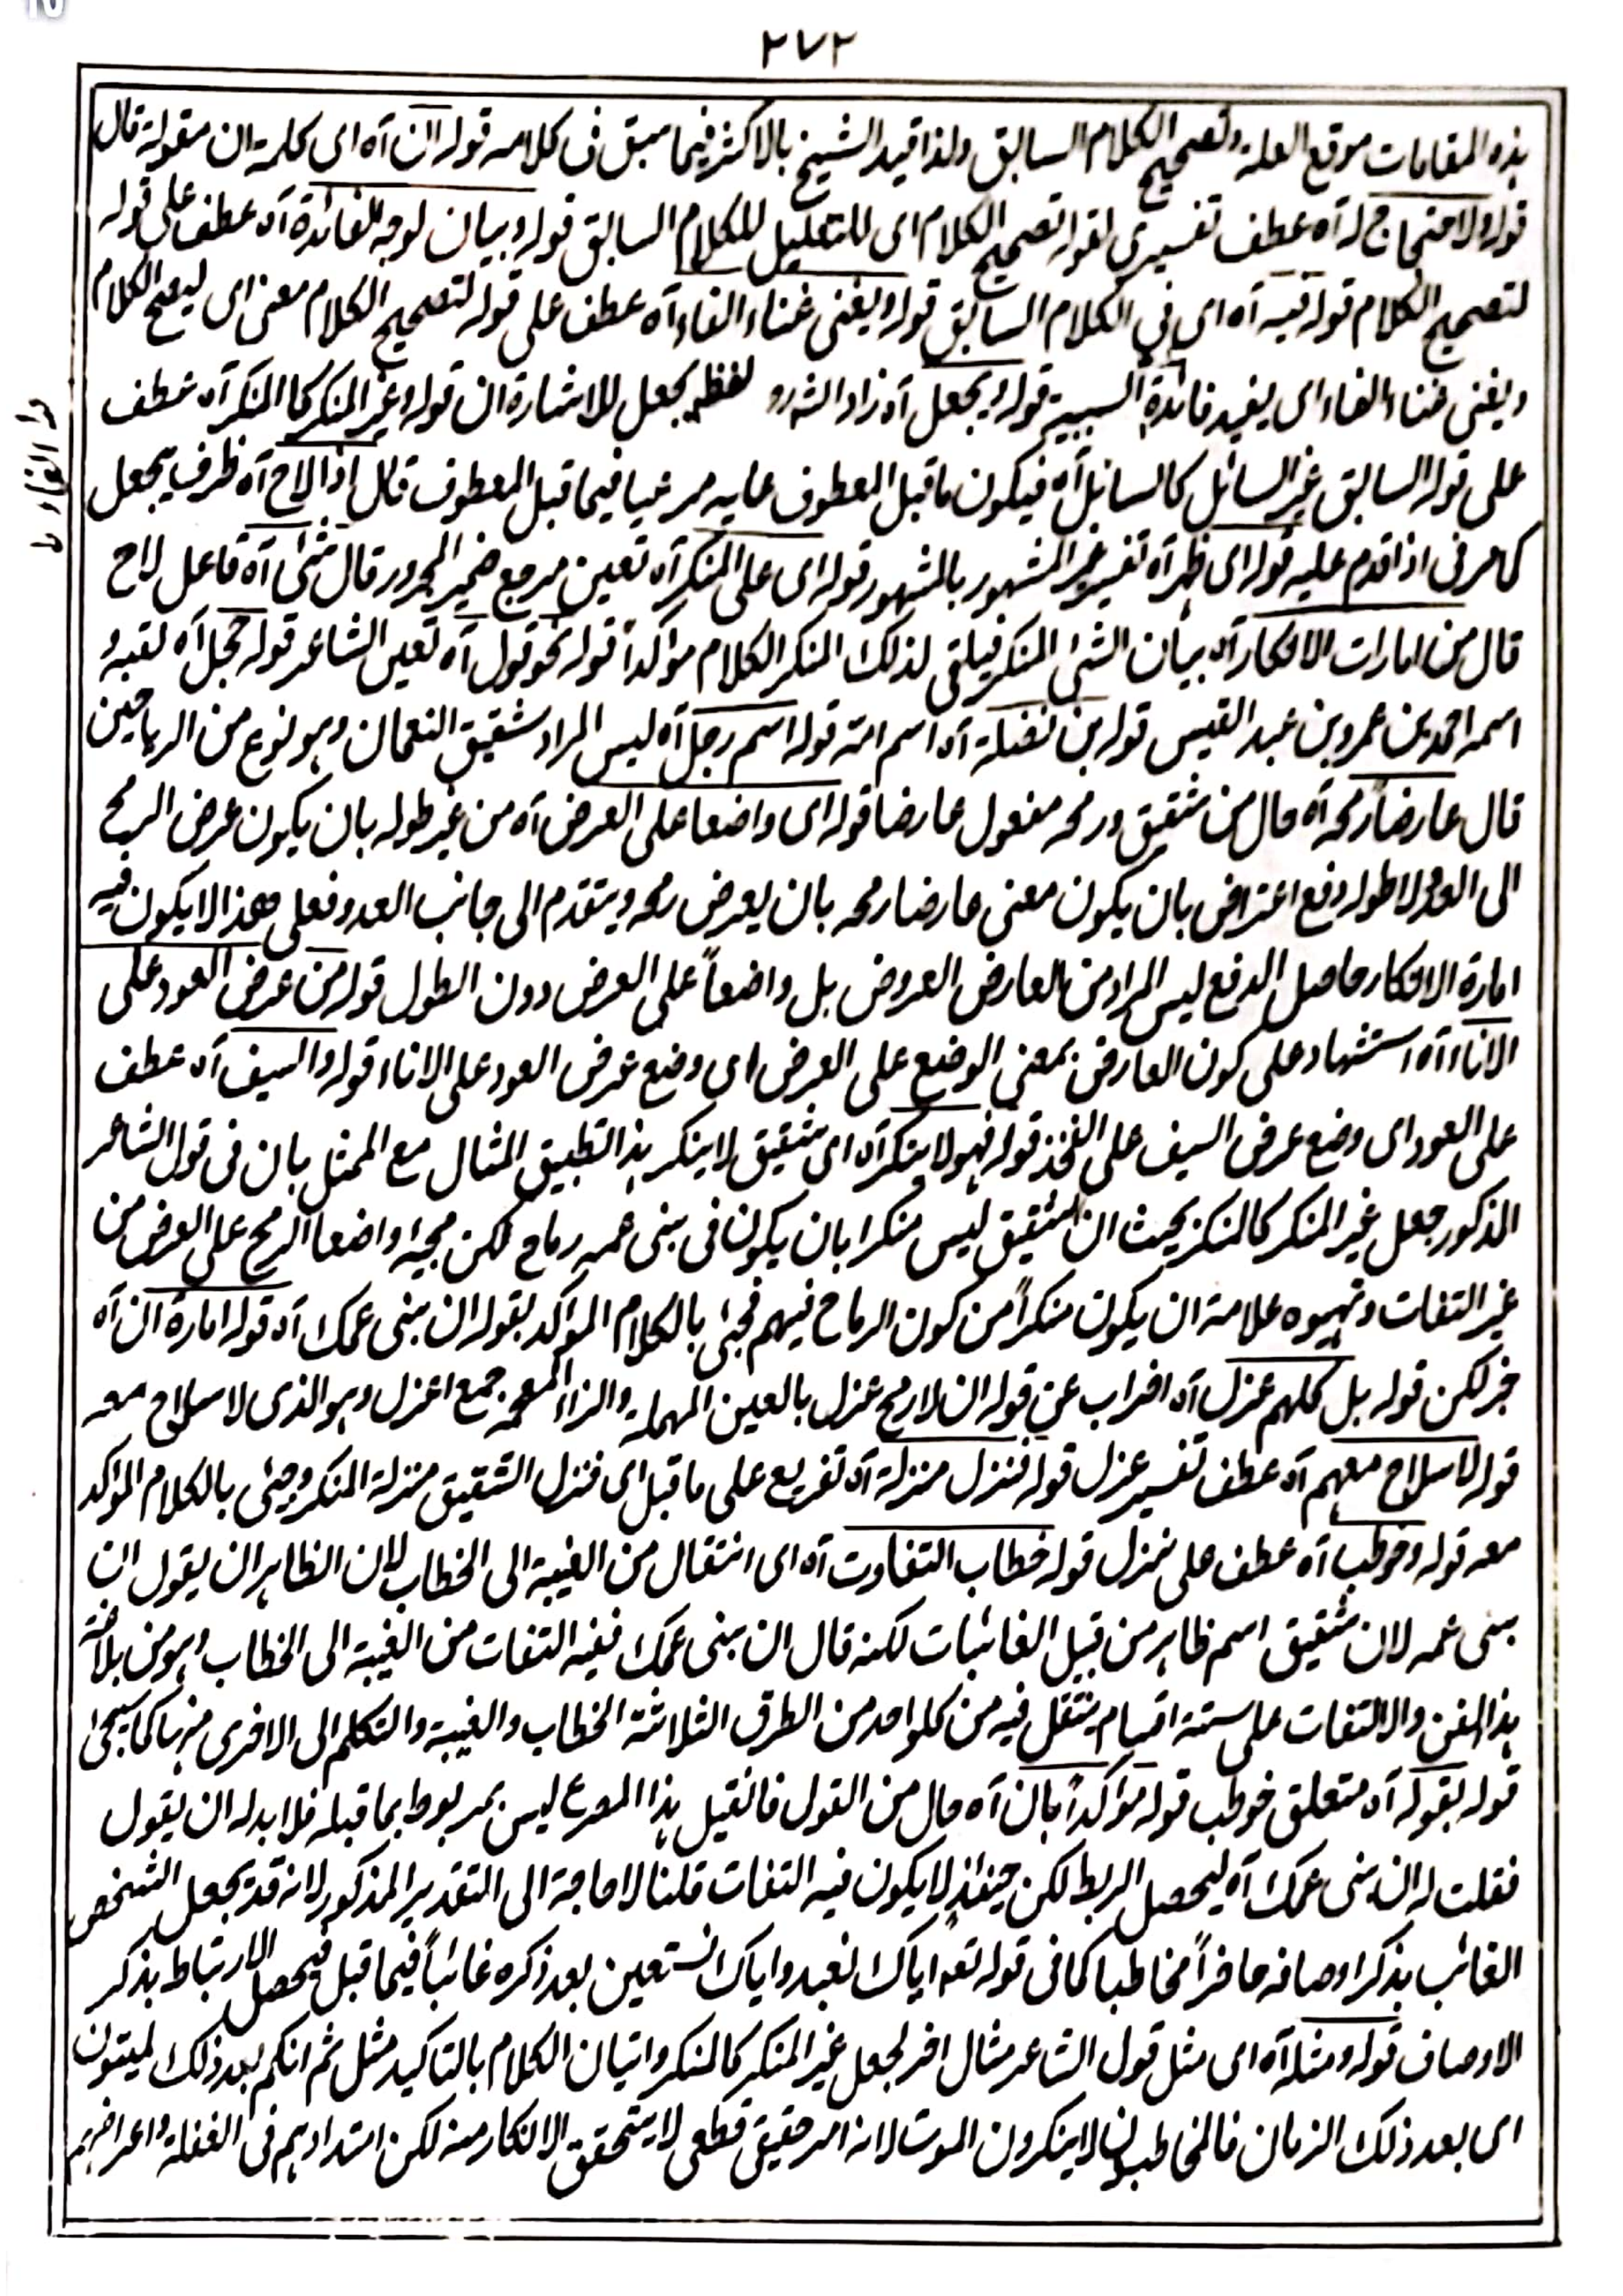 ٢٧٢
هذه المقامات موقع العلة وتصحيح الكلام السابق ولذا قيد الشيخ بالاكثر فيما سبق فى كلامه قوله ان آه اى كلمة ان مقولة قال
قوله ولاحتياج له آه عطف تفسيرى لقوله لتصحيح الكلام اى للتعليل للكلام السابق قوله وبيان لوجه للفائدة آه عطف على قوله
لتصحيح الكلام قوله فيه آه اى فى الكلام السابق قوله ويغنى غناء الفاء آه عطف على قوله لتصحيح الكلام معنى اى ليصح الكلام
ويغنى غناء الفاء اى يفيد فائدة السببية قوله ويجعل آه زاد الشه رو لفظ يجعل للاشارة ان قوله وغير المنكر كالمنكر آه عطف
على قوله السابق غير السائل كالسائل آه فيكون ما قبل المعطوف عليه مرعيا فيما قبل المعطوف قال اذا لاح آه ظرف يجعل
كما مر فى اذا قدم عليه قوله اى ظهر آه تفسير غير المشهور بالمشهور قوله اى على المنكر آه تعين مرجع ضمير المجرور قال شئ آه فاعل لاح
قال من امارات الانكار آه بيان الشئ المنكر فيلقى لذلك المنكر الكلام مؤكداً قوله نحو قول آه تعين الشاعر قوله حجل آه لقبه و
اسمه احمد بن عمرو بن عبد القيس قوله بن نضلة آه اسم امة قوله اسم رجل آه ليس المراد شقيق النعمان وهو نوع من الرياحين
قال عارضاً رمحه آه حال من شقيق ورمحه مفعول عارضا قوله اى واضعا على العرض آه من غير طوله بان يكون عرض الرمح
الى العدو لا طوله دفع اعتراض بان يكون معنى عارضا رمحه بان يعرض رمحه ويتقدم الى جانب العدو فعلى هذا لا يكون فيه
امارة الانكار حاصل الدفع ليس المراد من العارض العروض بل واضعاً على العرض دون الطول قوله من عرض العود على
الاناء آه استشهاد على كون العارض بمعنى الوضع على العرض اى وضع عرض العود على الاناء قوله والسيف آه عطف
على العود اى وضع عرض السيف على الفخذ قوله فهو لا ينكر آه اى شقيق لا ينكر هذا تطبيق المثال مع الممثل بان فى قول الشاعر
المذكور جعل غير المنكر كالمنكر بحيث ان الشقيق ليس منكرا بان يكون فى بنى عمه رماح لكن مجيئه واضعا الرمح على العرض من
غير التفات وتهيوه علامة ان يكون منكراً من كون الرماح فيهم فجئ بالكلام المؤكد بقوله ان بنى عمك آه قوله امارة ان آه
خبر لكن قوله بل كلهم عزل آه اضراب عن قوله ان لا رمح عزل بالعين المهملة والزاء المعجمة جمع اعزل وهو الذى لا سلاح معه
قوله لا سلاح معهم آه عطف تفسير عزل قوله فنزل منزلة آه تفريع على ما قبل اى فنزل الشقيق منزلة المنكر وجئ بالكلام المؤكد
معه قوله وخوطب آه عطف على نزل قوله خطاب التفاوت آه اى انتقال من الغيبة الى الخطاب لان الظاهر ان يقول ان
بنى عمه لان شقيق اسم ظاهر من قبيل الغائبات لكنه قال ان بنى عمك ففيه التفات من الغيبة الى الخطاب وهو من بلاغة
هذا الفن والالتفات على ستة اقسام ينتقل فيه من كلواحد من الطرق الثلاثة الخطاب والغيبة والتكلم الى الاخرى منها كما سيجئ
قوله بقوله آه متعلق خوطب قوله مؤكداً بان آه حال من القول فان قيل هذا المصرع ليس بمربوط بما قبله فلا بد له ان يقول
فقلت له ان بنى عمك آه ليحصل الربط لكن حينئذ لا يكون فيه التفات قلنا لا حاجة الى التقدير المذكور لانه قد يجعل الشخص
الغائب بذكر اوصافه حاضراً مخاطبا كما فى قوله تعه اياك نعبد واياك نستعين بعد ذكره غائباً فيما قبل فيحصل الارتباط بذكر
الاوصاف قوله ومثله آه اى مثل قول الشاعر مثال اخر لجعل غير المنكر كالمنكر واتيان الكلام بالتاكيد مثل ثم انكم بعد ذلك لميتون
اى بعد ذلك الزمان فالمخاطبون لا ينكرون الموت لانه امر حقيقى قطعى لا يتحقق الانكار منه لكن امتدادهم فى الغفلة واعراضهم